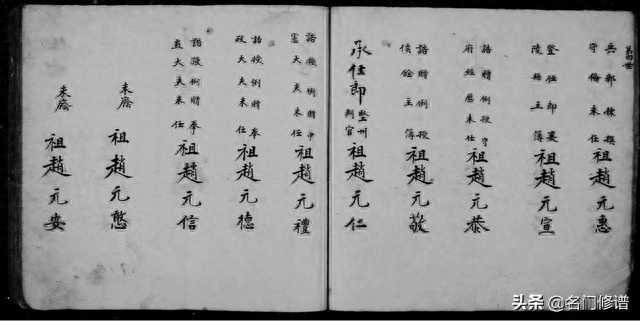 第四世
兵部
守俻未任
祖趙元惠
登仕郎襄
陵縣主簿
祖趙元宣
誥授例授守
府經歷未任
祖趙元恭
誥贈例授
候銓主簿
祖趙元敬
承仕郎
州
判官
祖趙元仁
誥授例贈中
憲大夫未任
祖趙元禮
誥授例贈奉
政大夫未任
祖趙元德
誥授例贈奉
直大夫未任
祖趙元信
未廕
祖趙元憨
未廕
祖趙元安
头条 @名门修谱